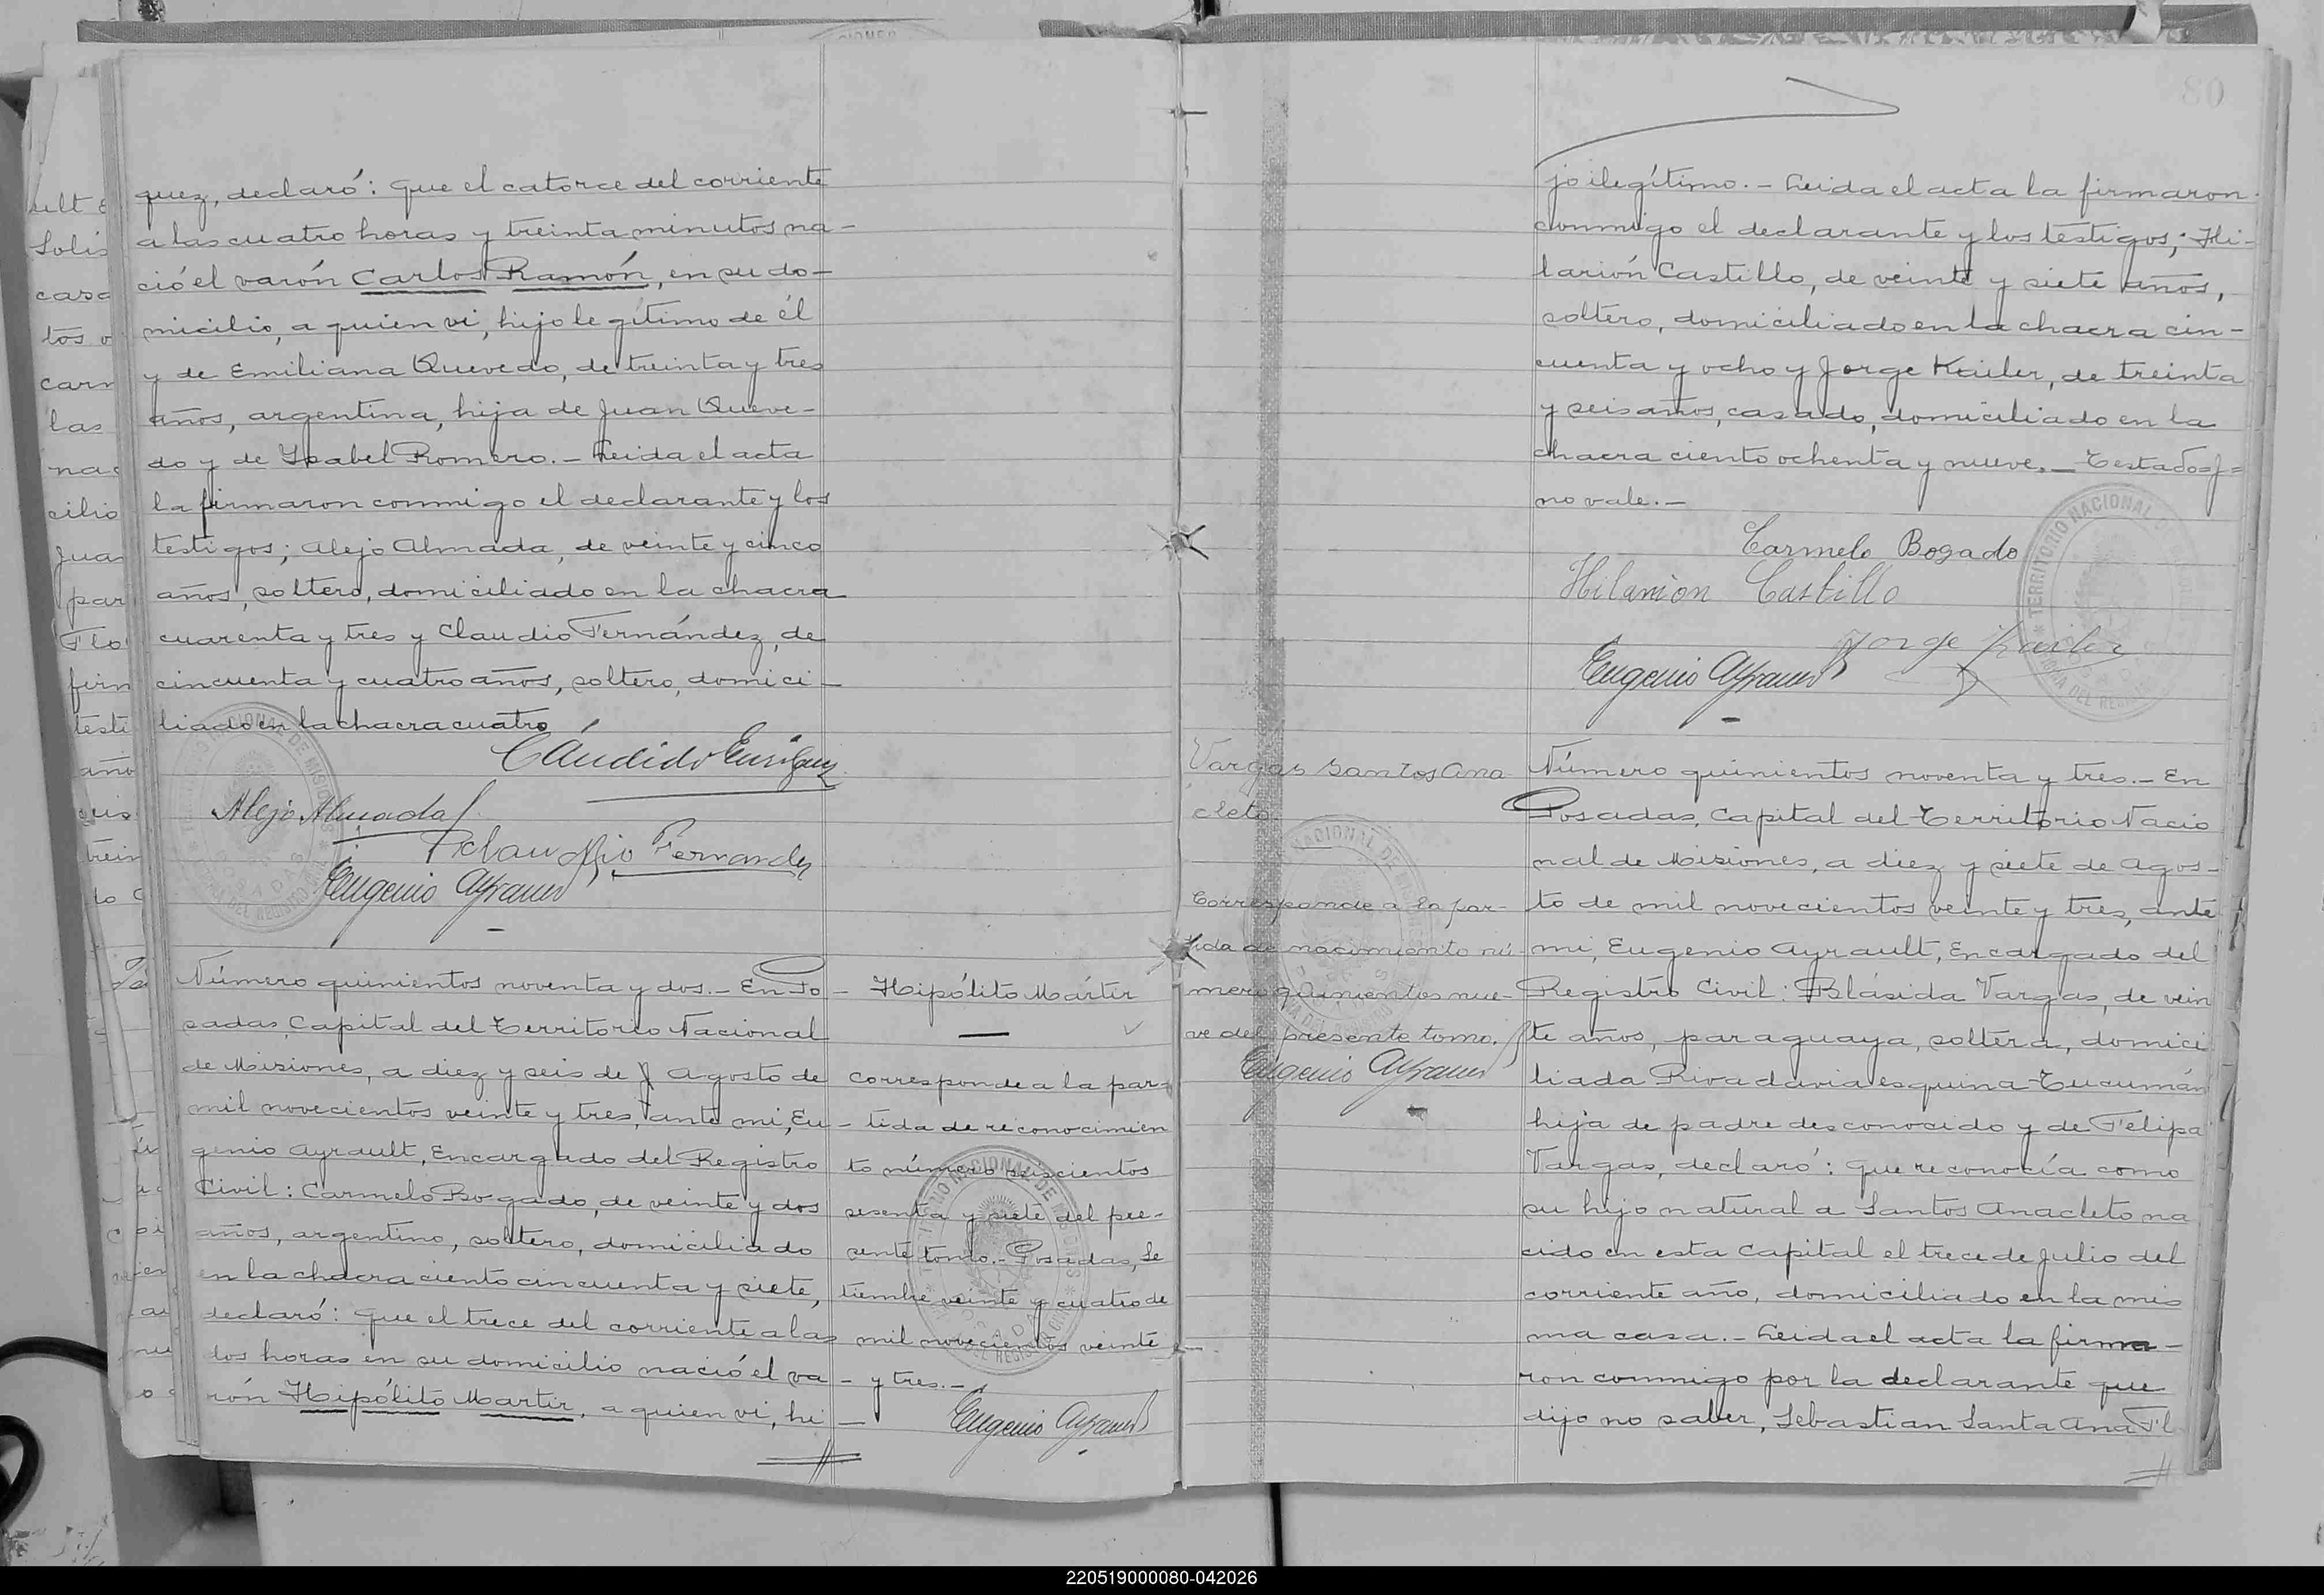 quez, declaró: que el catorce del corriente
a las cuatro horas y treinta minutos na-
ció el varón Carlos Ramón, en su do-
micilio, a quien vi, hijo legítimo de él
y de Emiliana Quevedo, de treinta y tres
años, argentina, hija de Juan Queve-
do y de Ysabel Romero.- Leida el acta
la firmaron conmigo el declarante y los
testigos; Alejo Almada, de veinte y cinco
años, soltero, domiciliado en la chacra
cuarenta y tres y Claudio Fernández, de
cincuenta y cuatro años, soltero, domici-
liado en la chacra cuatro
Cándido Enriquez
Alejo Almada
Claudio Fernandez
Eugenio Ayrault
Número quinientos noventa y dos.- En Po-
sadas, Capital del Territorio Nacional
de Misiones, a diez y seis de J Agosto de
mil novecientos veinte y tres, ante mi, Eu-
genio Ayrault, Encargado del Registro
Civil: Carmelo Bogado, de veinte y dos
años, argentino, soltero, domiciliado
en la chacra ciento cincuenta y siete,
declaró: que el trece del corriente a las
dos horas en su domicilio nació el va-
rón Hipólito Martir, a quien vi, hi-
Hipólito Mártir
corresponde a la par-
tida de reconocimien
to número seiscientos
sesenta y siete del pre-
sente tomo.- Posadas, Se
tiembre veinte y cuatro de
mil novecientos veinte
y tres.-
Eugenio Ayrault
80
jo ilegítimo.- Leida el acta la firmaron
conmigo el declarante y los testigos; Hi-
larión Castillo, de veinte y siete años,
soltero, domiciliado en la chacra cin-
cuenta y ocho y Jorge Kailer, de treinta
y seis años, casado, domiciliado en la
chacra ciento ochenta y nueve.- Testado=J=
no vale.-
Carmelo Bogado
Hilarion Castillo
Jorge Kailer
Eugenio Ayrault
Vargas Santos Ana
cleto
Corresponde a la par-
tida de nacimiento nú-
mero quinientos nue-
ve del presente tomo.
Eugenio Ayrault
Número quinientos noventa y tres.- En
Posadas, Capital del Territorio Nacio
nal de Misiones, a diez y siete de Agos-
to de mil novecientos veinte y tres, ante
mi, Eugenio Ayrault, Encargado del
Registro Civil: Blásida Vargas, de vein
te años, paraguaya, soltera, domici
liada Rivadavia esquina Tucumán
hija de padre desconocido y de Felipa
Vargas, declaró: que reconocía como
su hijo natural a Santos Anacleto na
cido en esta Capital el trece de Julio del
corriente año, domiciliado en la mis
ma casa.- Leida el acta la firma-
ron conmigo por la declarante que
dijo no saber, Sebastian Santa Ana Fl
220519000080-042026